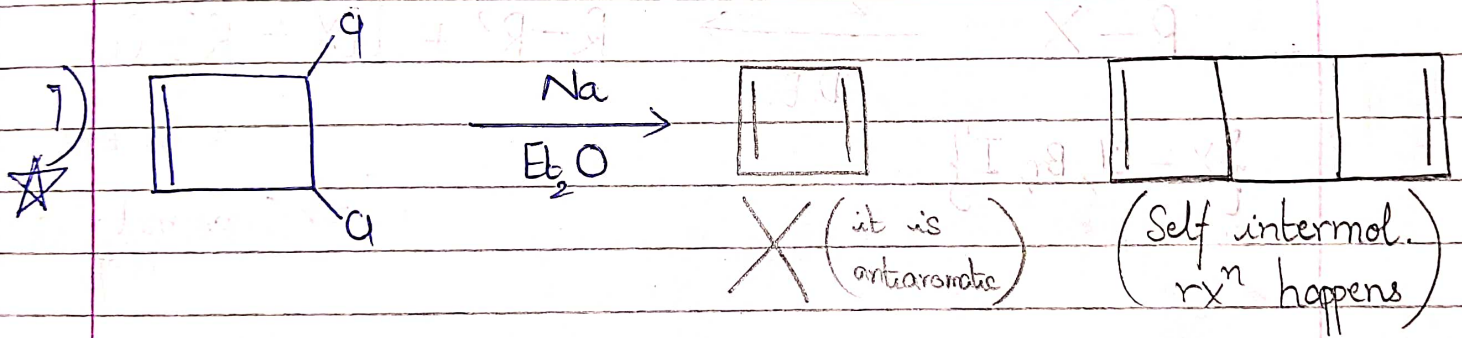 1)
Cl
Cl
Na
Et₂O
X (it is
antiaromatic)
(Self intermol.
rxⁿ happens)